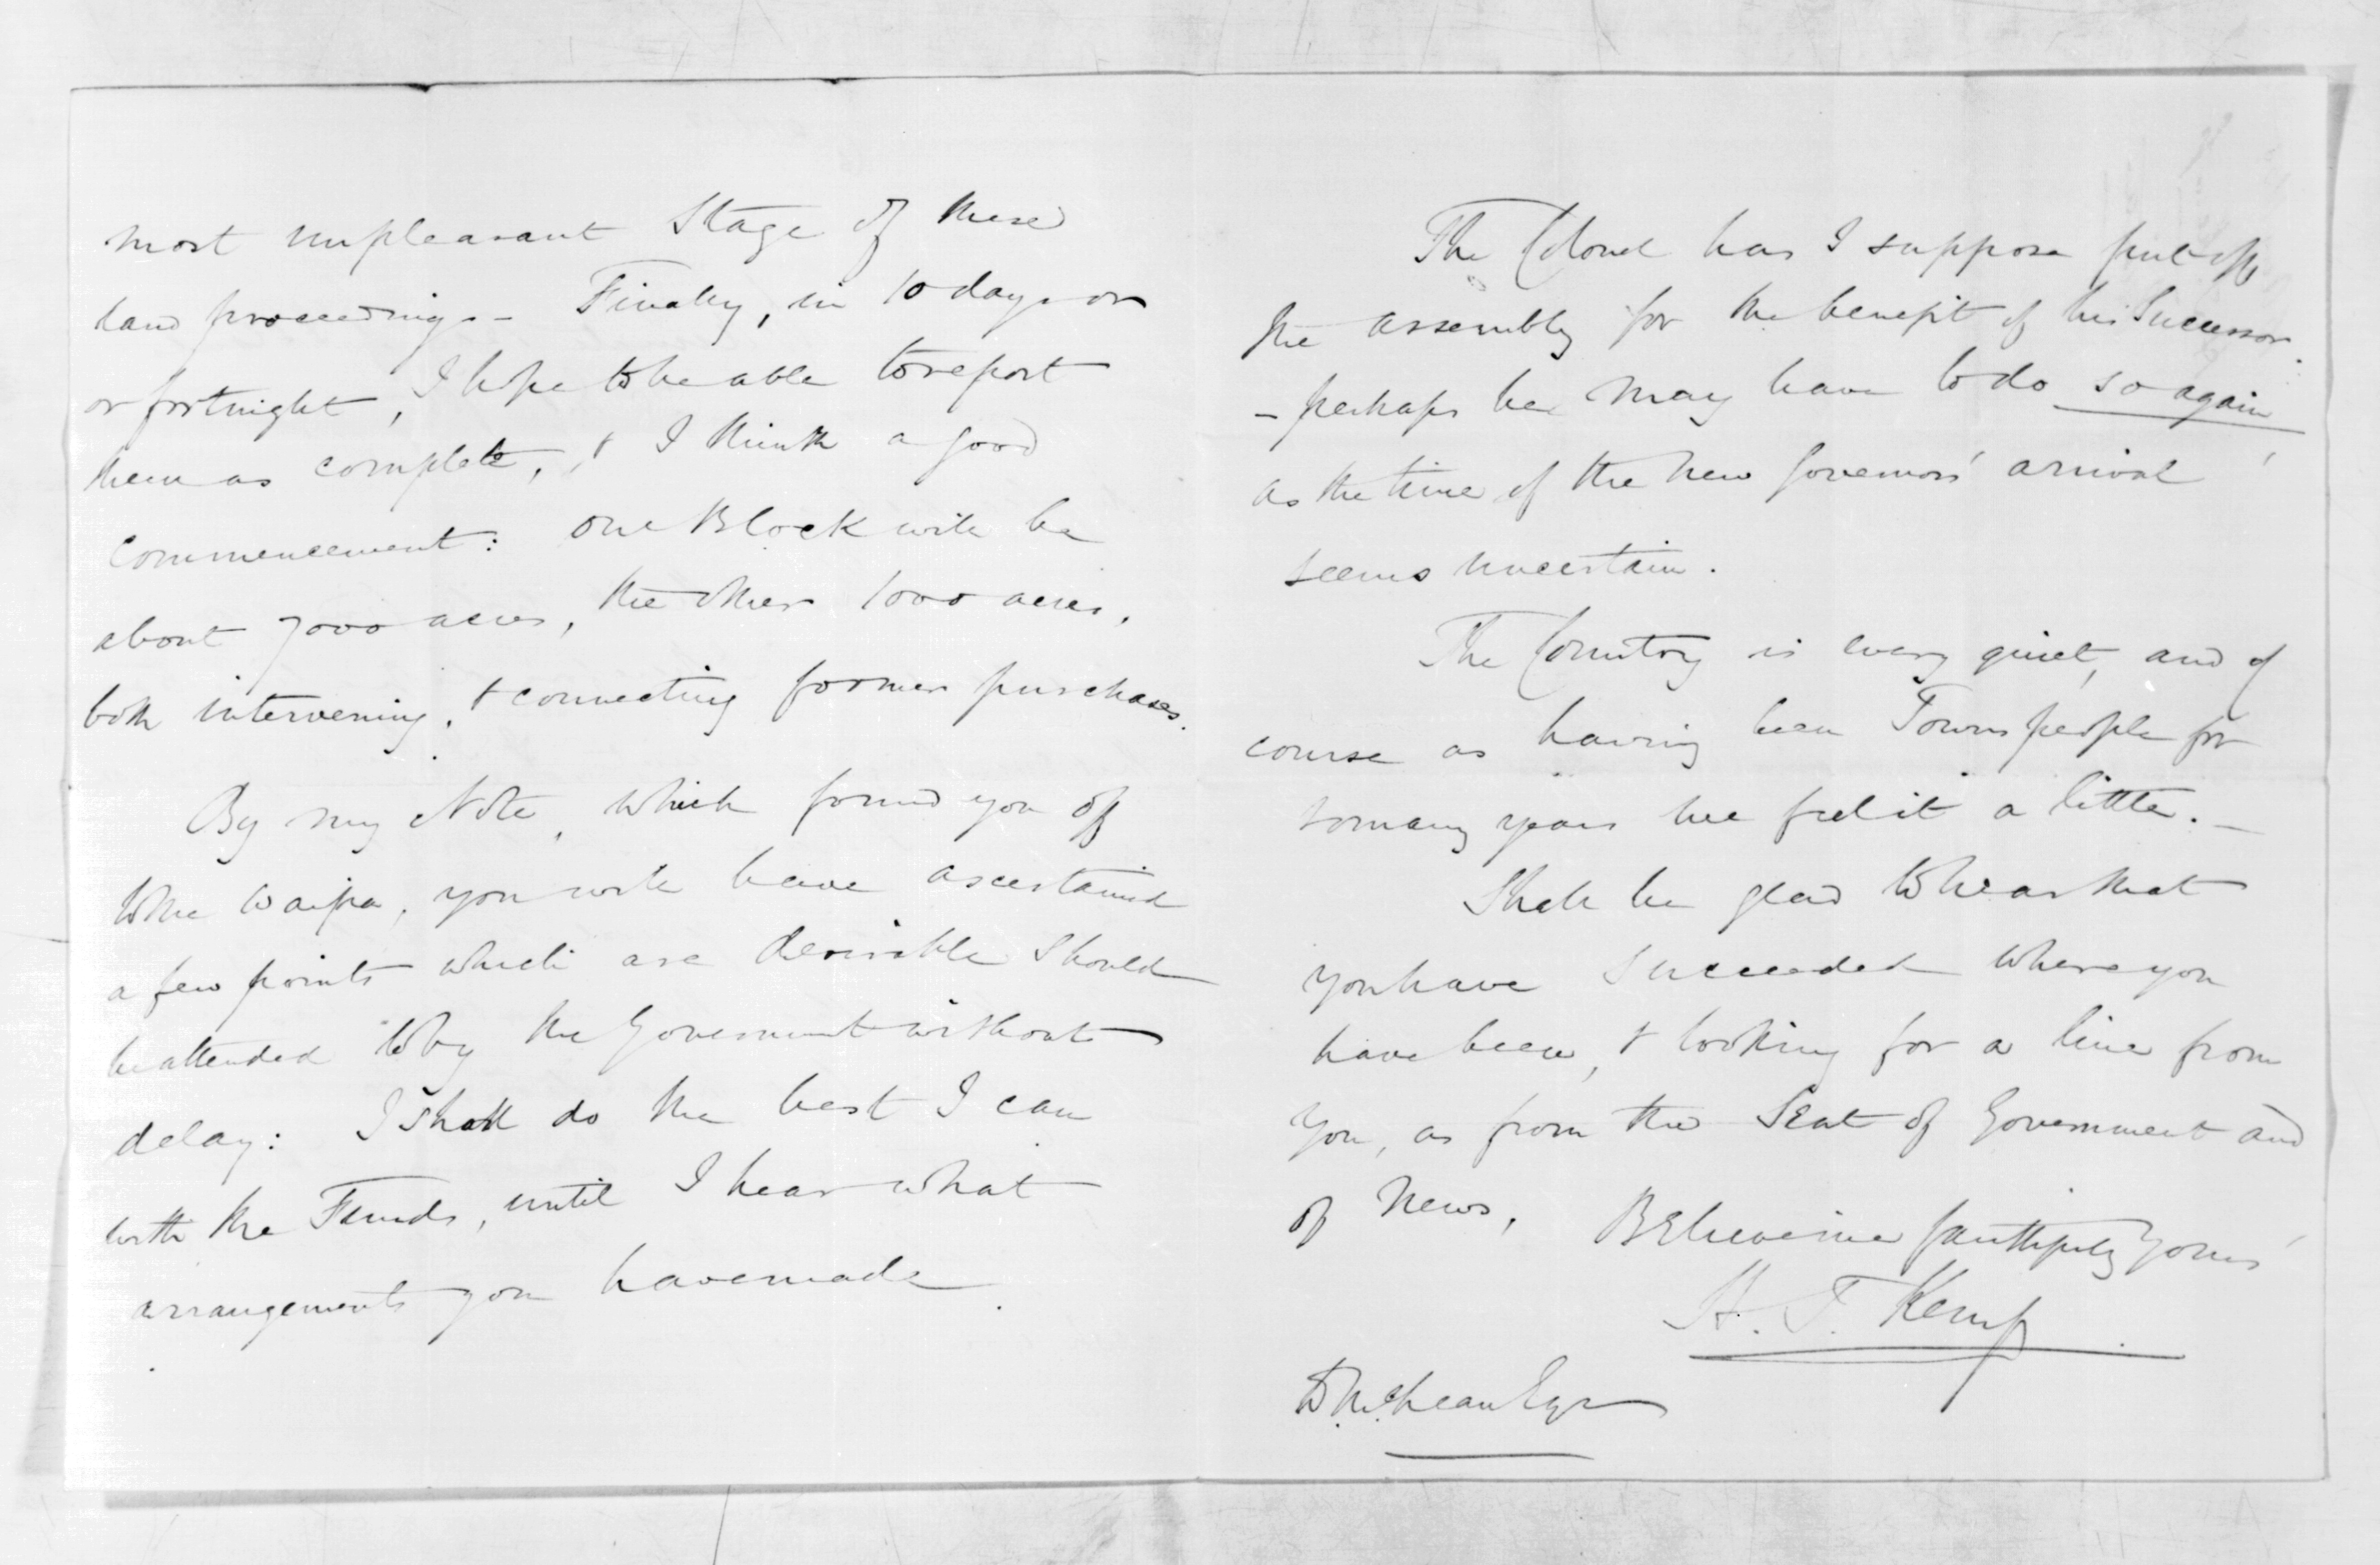 most unpleasant Stage of these
land proceedings - Finally, in 10 days or
or fortnight, I hope to be able to report
them as complete, & I think a good
commencement: One Block will be
about 7000 acres, the other 1000 acres,
both intervening, & connecting former purchases.
By my Note, which found you off
to the Waipa, you will have ascertained
a few points which are desirable should
be attended to by the Government without
delay: I shall do the best I can
with the Funds, until I hear what
arrangements you have made.
The Colonel has I suppose put off
the assembly for the benefit of his Successor.
- perhaps he may have to do so again
as the time of the new Governors' arrival
seems uncertain.
The Country is very quiet, and of
course as having been Towns people for
so many years we feel it a little. -
Shall be glad to hear that
you have succeeded where you
have been, & looking for a line from
you, as from the Seat of Government and
of News, Believe me faithfully Yours
H. T. Kemp
D. McLean Esqr